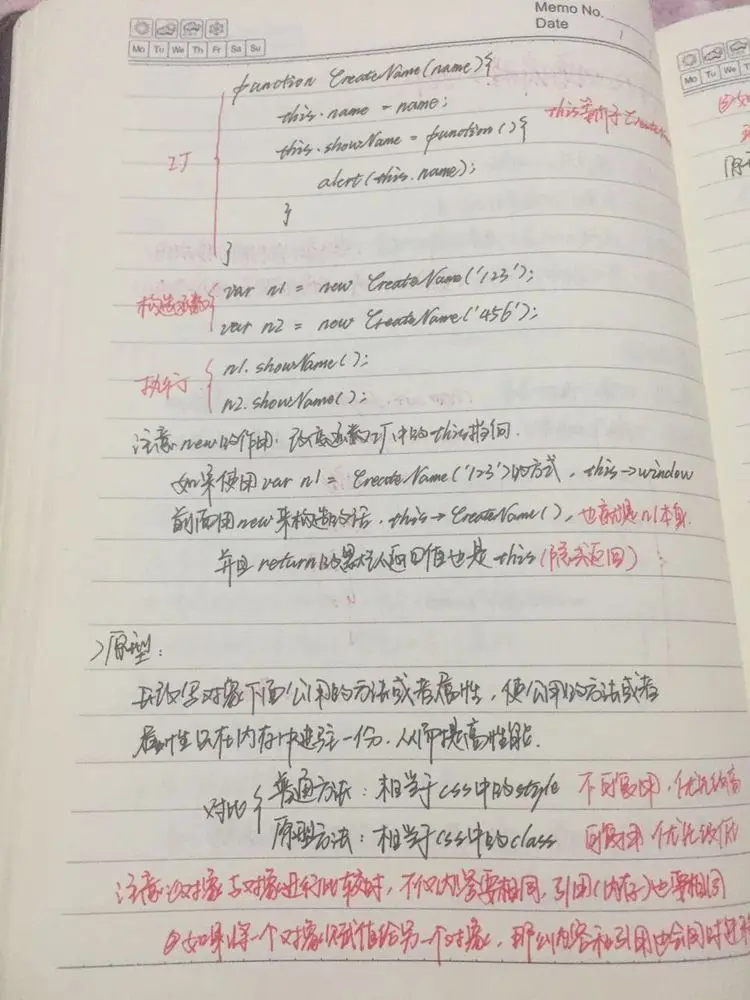 Memo No.
Date
Mo Tu We Th Fr Sa Su
Mo Tu We Th
function CreateName(name){
this.name = name;
this.showName = function(){
this等价于CreateName
alert(this.name);
}
}
构造函数 { var n1 = new CreateName('123');
var n2 = new CreateName('456');
执行 { n1.showName();
n2.showName();
注意:new的作用:改变函数工厂中的this指向.
如果使用var n1 = CreateName('123')的方式,this→window
前面用new来构造的话,this→CreateName(),也就是n1本身.
并且return的默认返回值也是this(隐式返回)
>原型:
去改写对象下面公用的方法或者属性,使公用的方法或者
属性只在内存中建立一份.从而提高性能.
对比 { 普通方法:相当于css中的style 不可复用,优先级高
原型方法:相当于css中的class 可复用 优先级低
注意:①对象与对象进行比较时,不仅内容要相同,引用(内存)也要相同
②如果将一个对象赋值给另一个对象,那么内容和引用也会同时